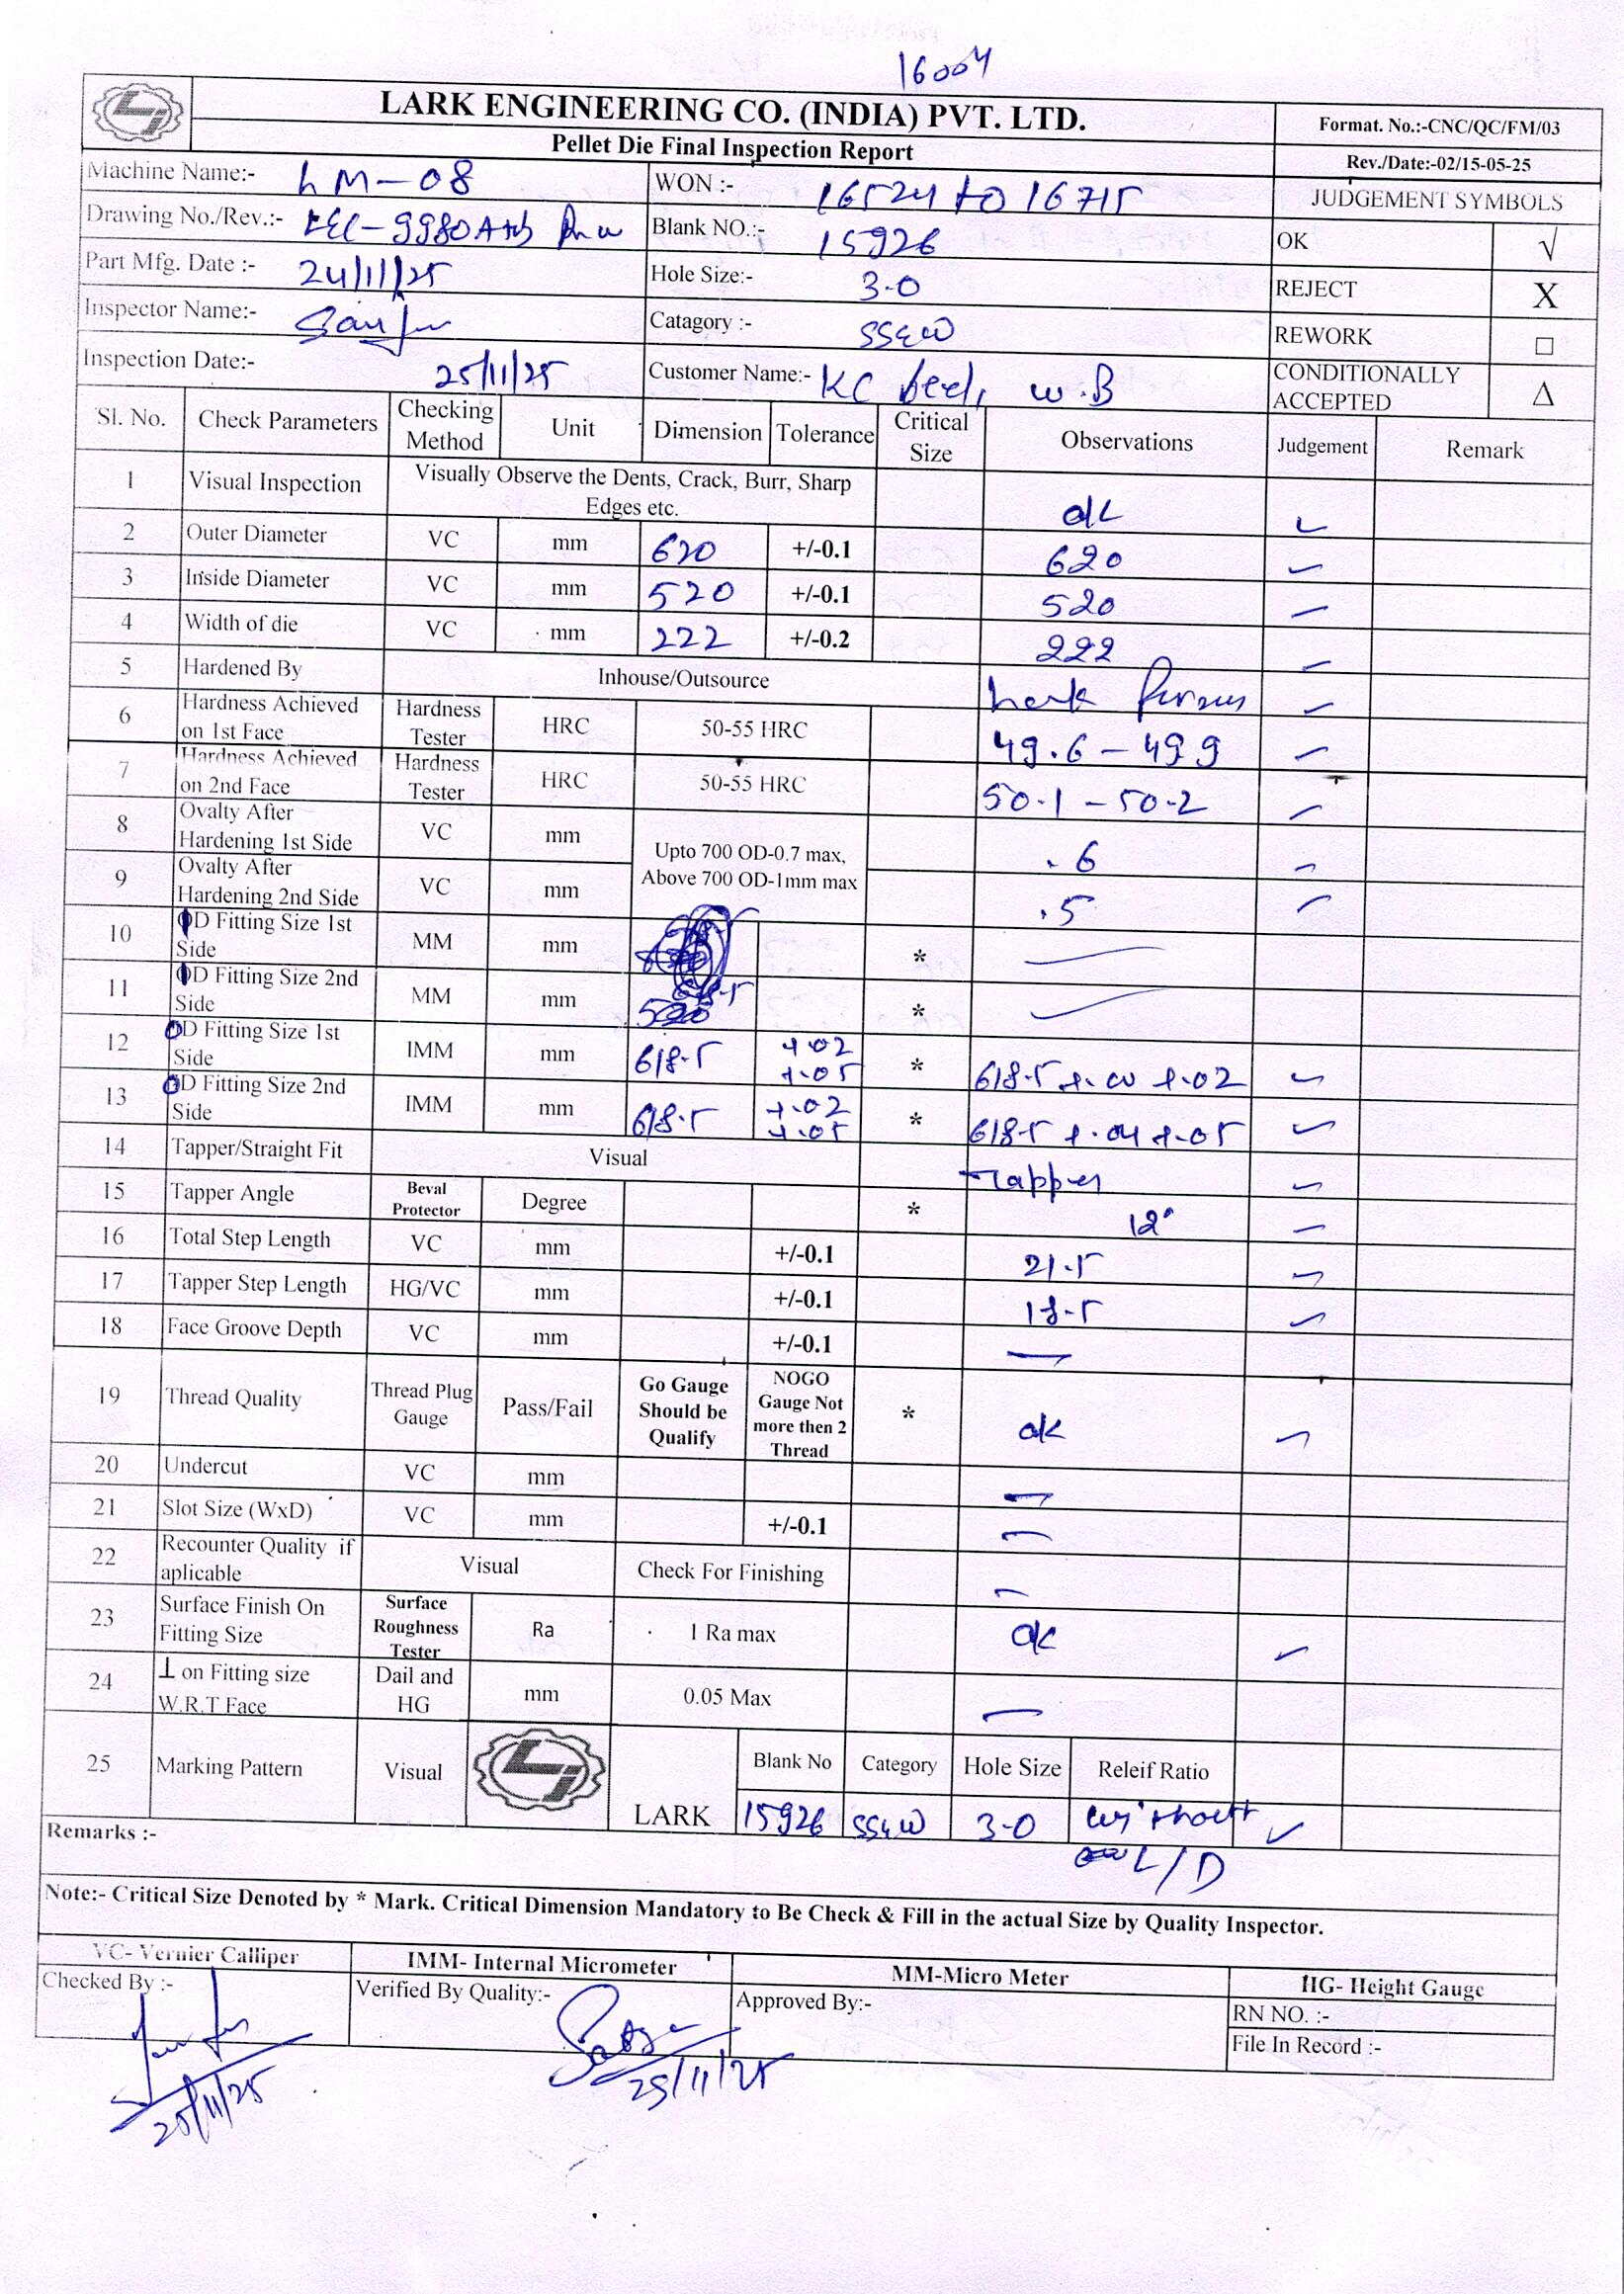 16004
LARK ENGINEERING CO. (INDIA) PVT. LTD.
Pellet Die Final Inspection Report
Format. No.:-CNC/QC/FM/03
Rev./Date:-02/15-05-25
Machine Name:- LM-08 WON :- 16524 to 16715 JUDGEMENT SYMBOLS
Drawing No./Rev.:- LEC-9980A Blank NO.:- 15926 OK √
Part Mfg. Date :- 24/11/25 Hole Size:- 3.0 REJECT X
Inspector Name:- Catagory :- SS4W REWORK □
Inspection Date:- 25/11/25 Customer Name:- KC feed, W.B CONDITIONALLY ACCEPTED Δ
Sl. No. Check Parameters Checking Method Unit Dimension Tolerance Critical Size Observations Judgement Remark
1 Visual Inspection Visually Observe the Dents, Crack, Burr, Sharp Edges etc. ok ✓
2 Outer Diameter VC mm 620 +/-0.1 620 ✓
3 Inside Diameter VC mm 520 +/-0.1 520 ✓
4 Width of die VC mm 222 +/-0.2 222 ✓
5 Hardened By Inhouse/Outsource Lark ✓
6 Hardness Achieved on 1st Face Hardness Tester HRC 50-55 HRC 49.6 - 49.9 ✓
7 Hardness Achieved on 2nd Face Hardness Tester HRC 50-55 HRC 50.1 - 50.2 ✓
8 Ovalty After Hardening 1st Side VC mm Upto 700 OD-0.7 max, Above 700 OD-1mm max .6 ✓
9 Ovalty After Hardening 2nd Side VC mm .5 ✓
10 D Fitting Size 1st Side MM mm * —
11 D Fitting Size 2nd Side MM mm * —
12 OD Fitting Size 1st Side IMM mm 618.5 +.02 +.05 * 618.5 +.00 +.02 ✓
13 OD Fitting Size 2nd Side IMM mm 618.5 +.02 +.05 * 618.5 +.04 +.05 ✓
14 Tapper/Straight Fit Visual Tapper ✓
15 Tapper Angle Beval Protector Degree * 12° ✓
16 Total Step Length VC mm +/-0.1 21.5 ✓
17 Tapper Step Length HG/VC mm +/-0.1 18.5 ✓
18 Face Groove Depth VC mm +/-0.1 —
19 Thread Quality Thread Plug Gauge Pass/Fail Go Gauge Should be Qualify NOGO Gauge Not more then 2 Thread * ok ✓
20 Undercut VC mm —
21 Slot Size (WxD) VC mm +/-0.1 —
22 Recounter Quality if aplicable Visual Check For Finishing —
23 Surface Finish On Fitting Size Surface Roughness Tester Ra 1 Ra max ok ✓
24 ⊥ on Fitting size W.R.T Face Dail and HG mm 0.05 Max —
25 Marking Pattern Visual LARK Blank No Category Hole Size Releif Ratio
15926 SS4W 3.0 without L/D ✓
Remarks :-
Note:- Critical Size Denoted by * Mark. Critical Dimension Mandatory to Be Check & Fill in the actual Size by Quality Inspector.
VC- Vernier Calliper IMM- Internal Micrometer MM-Micro Meter HG- Height Gauge
Checked By :- Verified By Quality:- Approved By:- RN NO. :-
File In Record :-
25/11/25 25/11/25